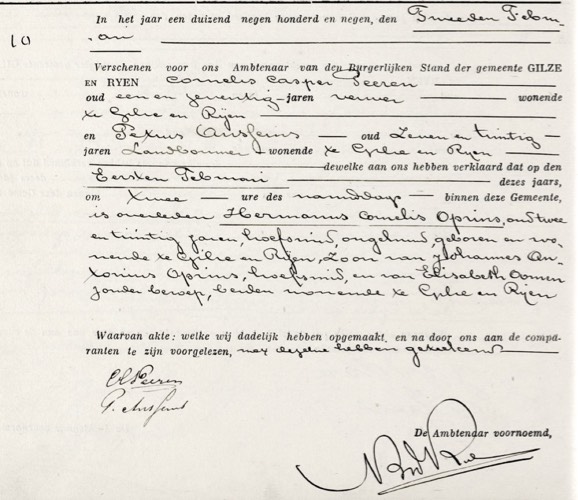 10
In het jaar een duizend negen honderd en negen, den Tweeden Febru-
ari
Verschenen voor ons Ambtenaar van den Burgerlijken Stand der gemeente GILZE
EN RYEN Cornelis Casper Peeren
oud een en zeventig jaren verwer wonende
te Gilze en Rijen
en Petrus oud Zeven en twintig
jaren Landbouwer wonende te Gilze en Rijen
dewelke aan ons hebben verklaard dat op den
Eersten Februari dezes jaars,
om twee ure des namiddags binnen deze Gemeente,
is overleden Hermanus Cornelis Oprins, oud twee
en twintig jaren, hoefsmid, ongehuwd, geboren en wo-
nende te Gilze en Rijen, Zoon van Johannes An-
tonius Oprins, hoefsmid, en van Elisabeth Oomen
zonder beroep, beiden wonende te Gilze en Rijen
Waarvan akte: welke wij dadelijk hebben opgemaakt, en na door ons aan de compa-
ranten te zijn voorgelezen, met dezelve hebben geteekend
CC Peeren
P.
De Ambtenaar voornoemd,